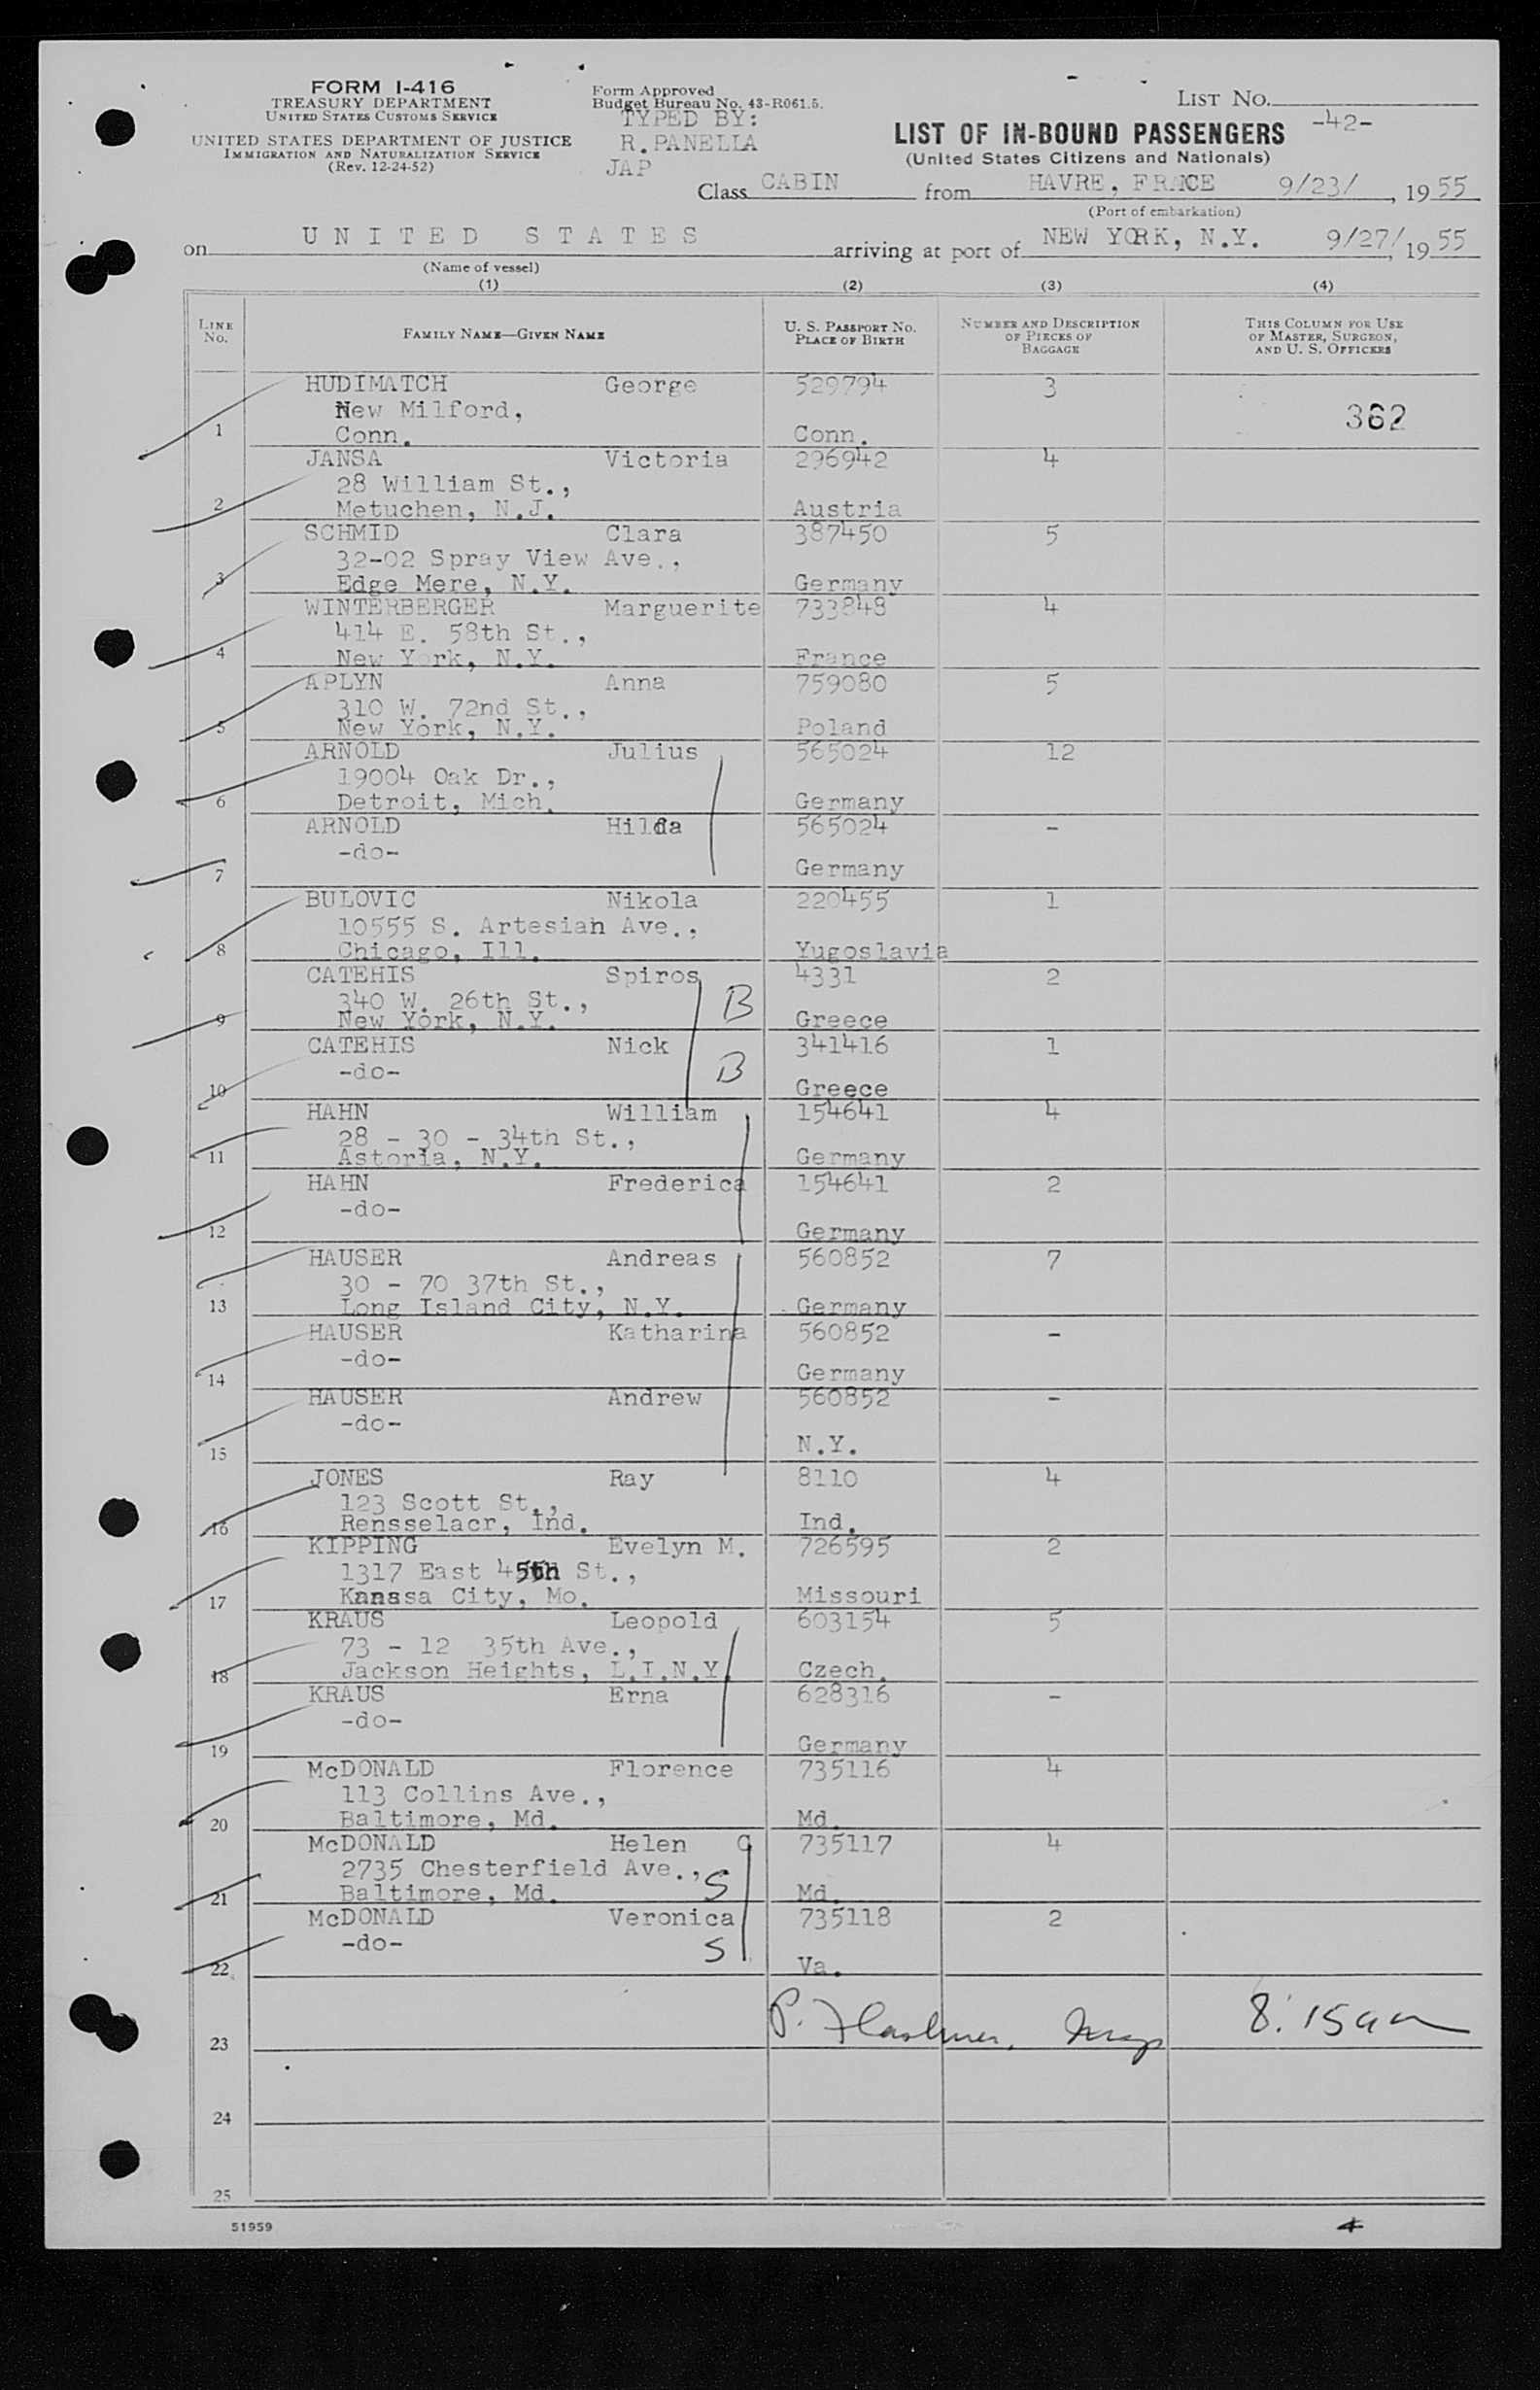 FORM I-416
TREASURY DEPARTMENT
UNITED STATES CUSTOMS SERVICE
UNITED STATES DEPARTMENT OF JUSTICE
IMMIGRATION AND NATURALIZATION SERVICE
(Rev. 12-24-52)
Form Approved
Budget Bureau No. 43-R061.5.
TYPED BY:
R.PANELLA
JAP
LIST NO.
-42-
LIST OF IN-BOUND PASSENGERS
(United States Citizens and Nationals)
Class CABIN from HAVRE, FRANCE 9/23/, 1955
(Port of embarkation)
on UNITED STATES arriving at port of NEW YORK, N.Y. 9/27/, 1955
(Name of vessel)
(1) (2) (3) (4)
LINE NO. FAMILY NAME—GIVEN NAME U. S. PASSPORT NO. PLACE OF BIRTH NUMBER AND DESCRIPTION OF PIECES OF BAGGAGE THIS COLUMN FOR USE OF MASTER, SURGEON, AND U. S. OFFICERS
HUDIMATCH George 529794 3
New Milford, 362
1 Conn. Conn.
JANSA Victoria 296942 4
28 William St.,
2 Metuchen, N.J. Austria
SCHMID Clara 387450 5
32-02 Spray View Ave.,
3 Edge Mere, N.Y. Germany
WINTERBERGER Marguerite 733848 4
414 E. 58th St.,
4 New York, N.Y. France
APLYN Anna 759080 5
310 W. 72nd St.,
5 New York, N.Y. Poland
ARNOLD Julius 565024 12
19004 Oak Dr.,
6 Detroit, Mich. Germany
ARNOLD Hilda 565024 -
-do-
7 Germany
BULOVIC Nikola 220455 1
10555 S. Artesian Ave.,
8 Chicago, Ill. Yugoslavia
CATEHIS Spiros 4331 2
340 W. 26th St., B
9 New York, N.Y. Greece
CATEHIS Nick 341416 1
-do- B
10 Greece
HAHN William 154641 4
28 - 30 - 34th St.,
11 Astoria, N.Y. Germany
HAHN Frederica 154641 2
-do-
12 Germany
HAUSER Andreas 560852 7
30 - 70 37th St.,
13 Long Island City, N.Y. Germany
HAUSER Katharina 560852 -
-do-
14 Germany
HAUSER Andrew 560852 -
-do-
15 N.Y.
JONES Ray 8110 4
123 Scott St.,
16 Rensselacr, Ind. Ind.
KIPPING Evelyn M. 726595 2
1317 East 45th St.,
17 Kanssa City, Mo. Missouri
KRAUS Leopold 603154 5
73 - 12 35th Ave.,
18 Jackson Heights, L.I.N.Y. Czech.
KRAUS Erna 628316 -
-do-
19 Germany
McDONALD Florence 735116 4
113 Collins Ave.,
20 Baltimore, Md. Md.
McDONALD Helen 735117 4
2735 Chesterfield Ave., S
21 Baltimore, Md. Md.
McDONALD Veronica 735118 2
-do- S
22 Va.
23 P. 8:15am
24
25
51959
4